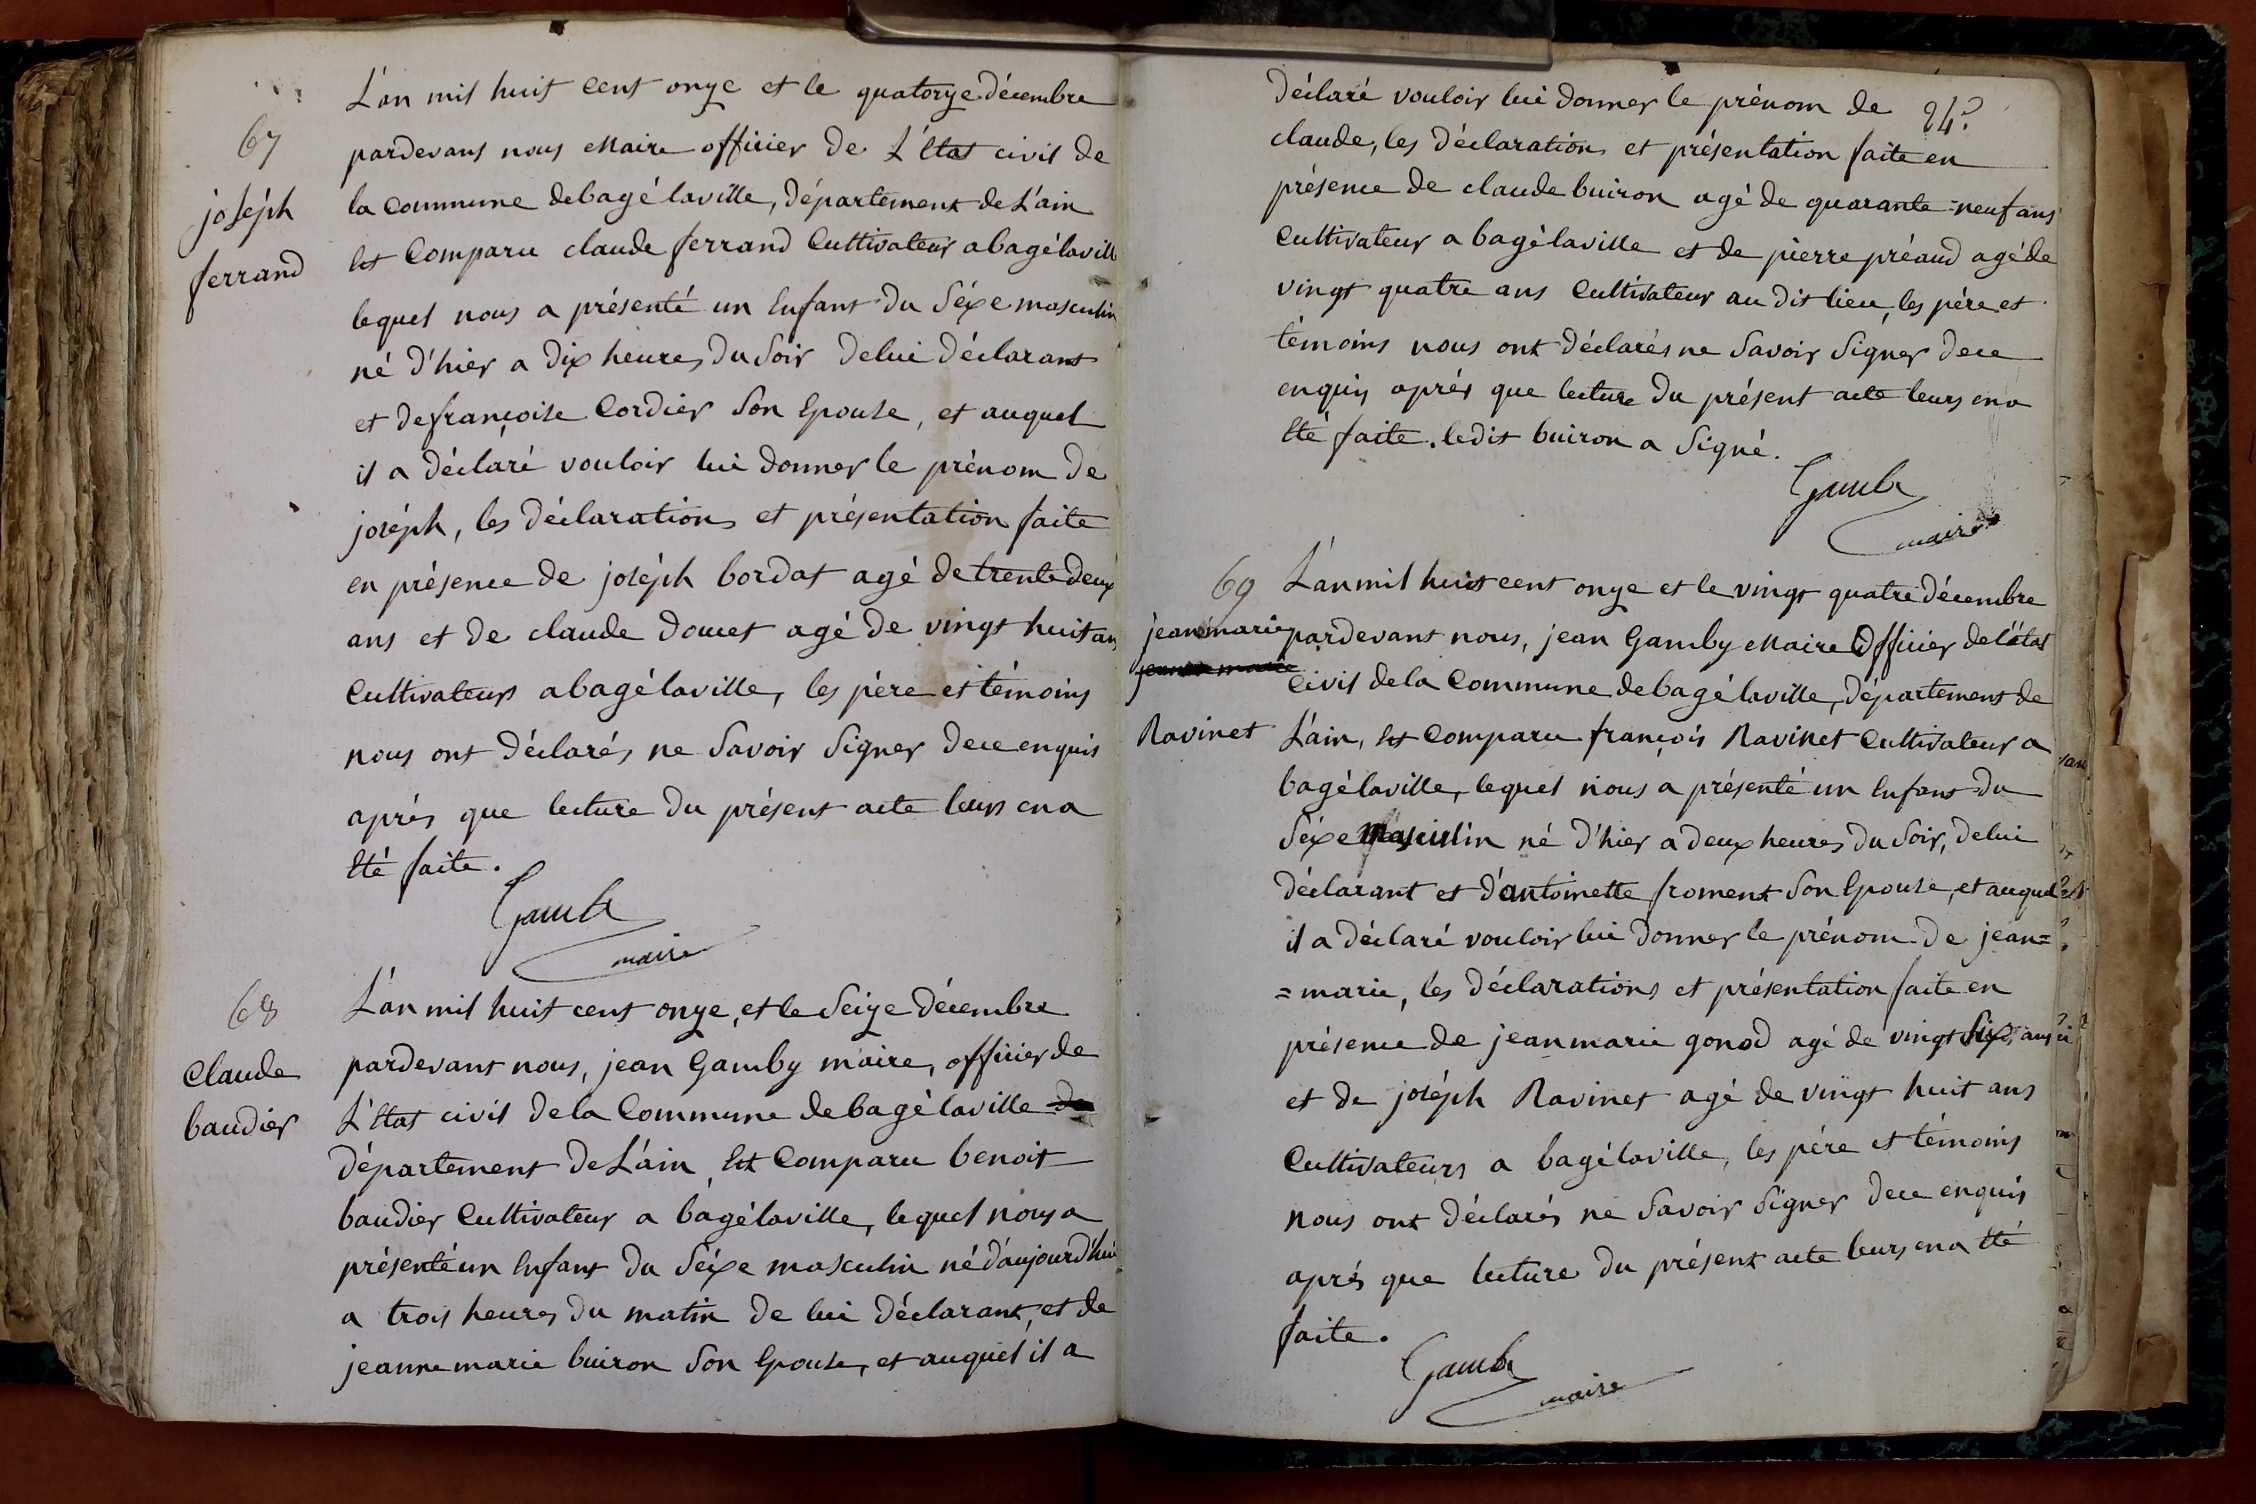 L'an mil huit cent onze et le quatorze décembre
67
pardevant nous Maire officier de L'état civil de
joséph
la commune de bagé laville, Département de L'ain
ferrand
Est Comparu claude ferrand Cultivateur a bagé laville
lequel nous a présenté un Enfant du Séxe masculin
né d'hier a dix heures du Soir de lui déclarant
et de françoise Cordier Son Epouse, et auquel
il a déclaré vouloir lui donner le prénom de
joséph, les déclarations et présentation faite
en présence de joséph bordat agé de trente deux
ans et de claude doucet agé de vingt huit ans
Cultivateurs a bagé laville, les père et témoins
nous ont déclarés ne Savoir Signer de ce enquis
après que lecture du présent acte leurs en a
Eté faite.
Gamby
maire
68
L'an mil huit cent onze, et le Seize décembre
Claude
pardevant nous, jean Gamby maire, officier de
baudier
L'Etat civil de la Commune de bagé laville de
département de L'ain, Est Comparu benoit
baudier Cultivateur a bagé laville, lequel nous a
présenté un Enfant du Séxe masculin né d'aujourd'hui
a trois heures du matin de lui déclarant, et de
jeanne marie buiron Son Epouse, et auquel il a
déclaré vouloir lui donner le prénom de
claude, les déclaration et présentation faite en
présence de claude buiron agé de quarante=neuf ans
Cultivateur a bagé laville et de pierre préaud agé de
vingt quatre ans Cultivateur au dit lieu, les père et
témoins nous ont déclarés ne Savoir Signer de ce
enquis après que lecture du présent acte leurs en a
Eté faite. ledit buiron a Signé.
Gamby
maire
69
L'an mil huit cent onze et le vingt quatre décembre
jean marie
pardevant nous, jean Gamby Maire Officier de l'état
jean marie
Civil de la Commune de bagé laville, Département de
Ravinet
L'ain, Est Comparu françois Ravinet Cultivateur a
bagé laville, lequel nous a présenté un Enfant du
Séxe Masculin né d'hier a deux heures du Soir, de lui
déclarant et d'antoinette froment Son Epouse, et auquel
il a déclaré vouloir lui donner le prénom de jean=
=marie, les déclarations et présentation faite en
présence de jean marie gonod agé de vingt Six ans
et de joséph Ravinet agé de vingt huit ans
Cultivateurs a bagé laville, les père et témoins
nous ont déclarés ne Savoir Signer de ce enquis
après que lecture du présent acte leurs en a Eté
faite.
Gamby
maire